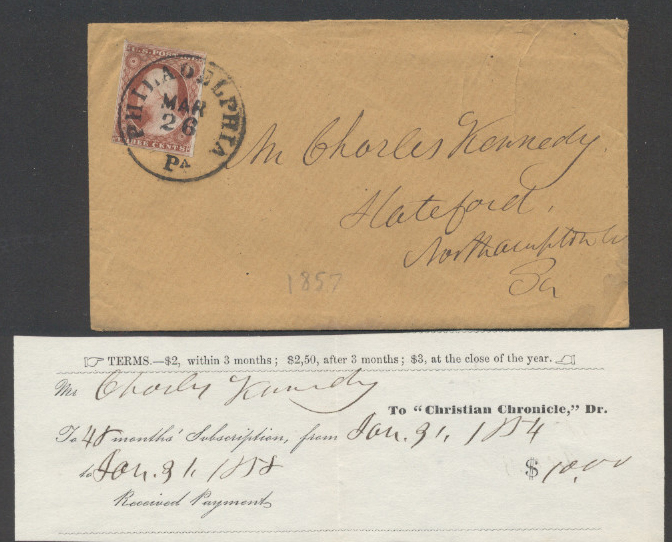 U.S. POSTAGE
THREE CENTS
PHILADELPHIA
MAR
26
Pa
Mr Charles Kennedy,
Slateford,
Northampton Co
Pa
1857
TERMS.—$2, within 3 months; $2,50, after 3 months; $3, at the close of the year.
Mr Charles Kennedy
To "Christian Chronicle," Dr.
To 48 months' Subscription, from Jan. 31, 1854
to Jan. 31, 1858 $ 10.00
Received Payment